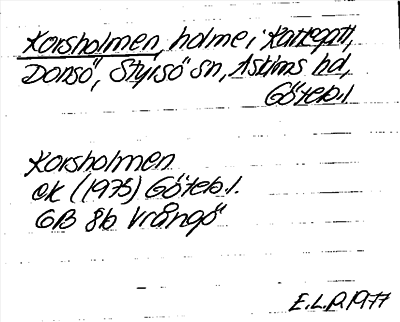 Korsholmen, holme i Kattegatt,
Donsö, Styrsö sn, Askims hd,
Göteb.l.
Korsholmen
ek (1975) Göteb.l.
GB 8b Vrångö
E.L.P. 1977